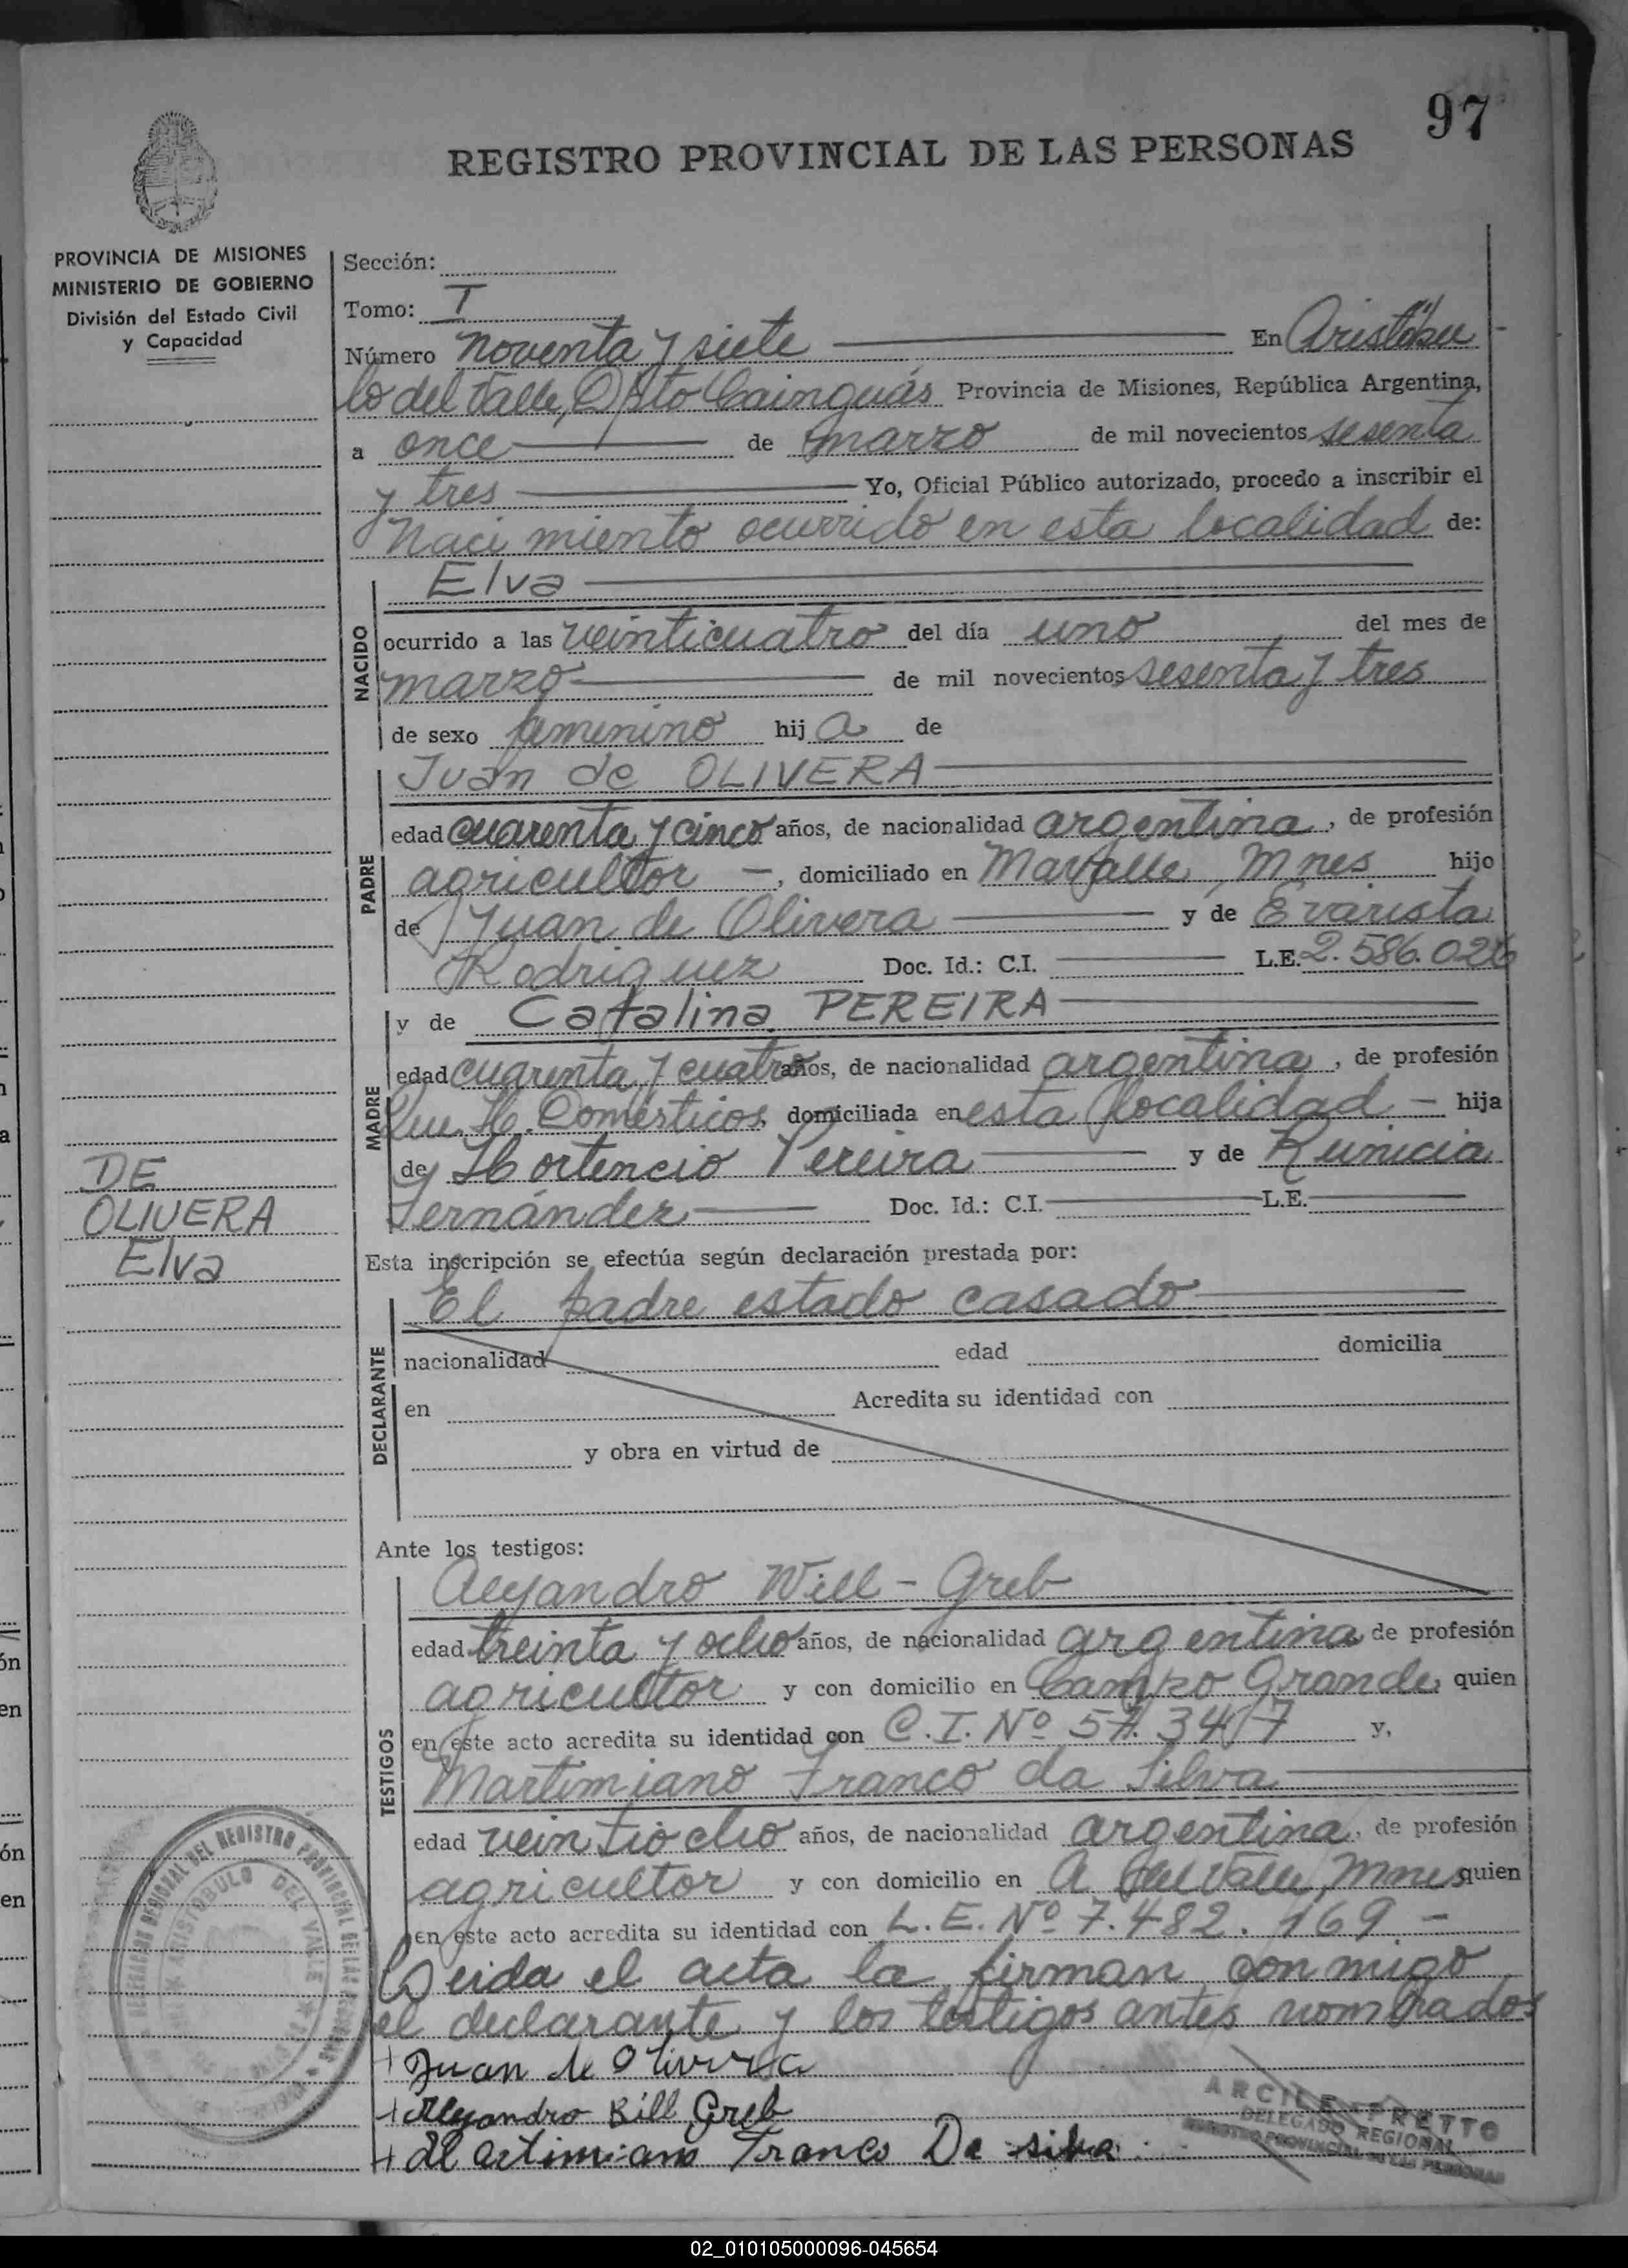 97
REGISTRO PROVINCIAL DE LAS PERSONAS
PROVINCIA DE MISIONES
MINISTERIO DE GOBIERNO
División del Estado Civil
y Capacidad
Sección:
Tomo: I
Número noventa y siete En Aristóbu
lo del Valle, Dpto Cainguás Provincia de Misiones, República Argentina,
a once de marzo de mil novecientos sesenta
y tres Yo, Oficial Público autorizado, procedo a inscribir el
Naci miento ocurrido en esta localidad de:
Elva
NACIDO
ocurrido a las veinticuatro del día uno del mes de
marzo de mil novecientos sesenta y tres
de sexo femenino hij a de
Juan de OLIVERA
PADRE
edad cuarenta y cinco años, de nacionalidad argentina, de profesión
agricultor -, domiciliado en Mnes hijo
de Juan de Olivera y de Evarista
Rodriguez Doc. Id.: C.I. L.E. 2.586.026
y de Catalina PEREIRA
MADRE
edad cuarenta y cuatro años, de nacionalidad argentina, de profesión
Que. H. Domésticos, domiciliada en esta localidad - hija
de Hortencio Pereira y de
Fernández Doc. Id.: C.I. L.E.
DE
OLIVERA
Elva
Esta inscripción se efectúa según declaración prestada por:
El padre estado casado
DECLARANTE
nacionalidad edad domicilia
en Acredita su identidad con
y obra en virtud de
Ante los testigos:
Alejandro Will - Greb
TESTIGOS
edad treinta y ocho años, de nacionalidad argentina de profesión
agricultor y con domicilio en Campo Grande, quien
en este acto acredita su identidad con C.I. Nº y,
Martimiano Franco da Silva
edad veintiocho años, de nacionalidad argentina, de profesión
agricultor y con domicilio en A del Valle, Mnes quien
en este acto acredita su identidad con L.E. Nº 7.482.169 -
Leida el acta la firman conmigo
el declarante y los testigos antes nombrados
+ Juan de Olivera
+ Alejandro Bill Greb
+ Martimiano Franco Da silva
ARCILE PRETTO
DELEGADO REGIONAL
REGISTRO PROVINCIAL DE LAS PERSONAS
DELEGACION REGIONAL DEL REGISTRO PROVINCIAL DE LAS PERSONAS
ARISTOBULO DEL VALLE
02_010105000096-045654